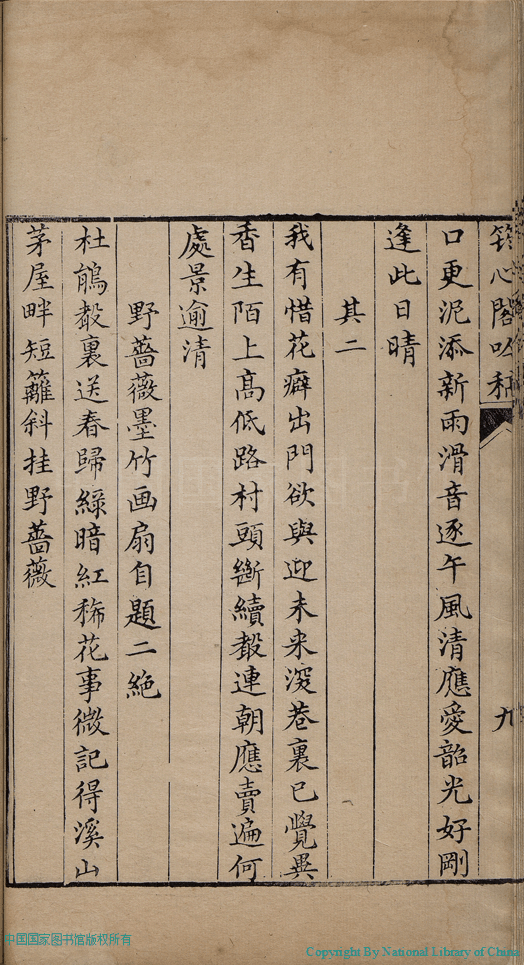 筠心閣吟稿
九
口更泥添新雨滑音逐午風清應愛韶光好剛
逢此日晴
其二
我有惜花癖出門欲與迎未来深巷裏已覺異
香生陌上高低路村頭斷續聲連朝應賣遍何
處景逾清
野薔薇墨竹画扇自題二絶
杜鵑聲裏送春歸綠暗紅稀花事微記得溪山
茅屋畔短籬斜挂野薔薇
中国国家图书馆版权所有
Copyright By National Library of China